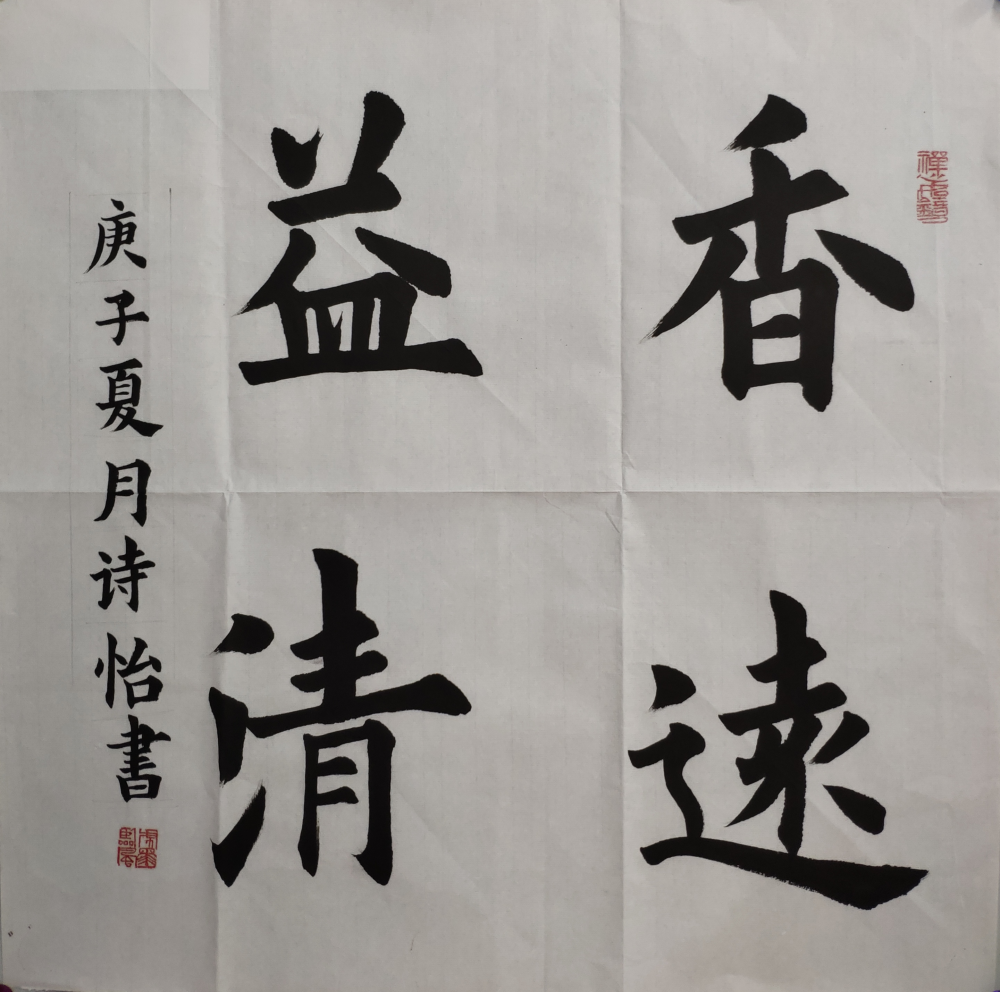 香遠
益清
庚子夏月诗怡書